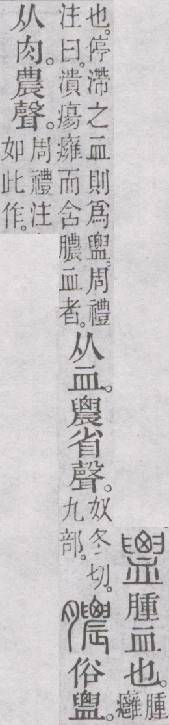 𧗕腫血也。腫癰
也。停滯之血則爲𧗕。周禮注曰。潰瘍癰而含膿血者。从血。農省聲。奴冬切。九部。膿俗𧗕。
从肉。農聲。周禮注如此作。